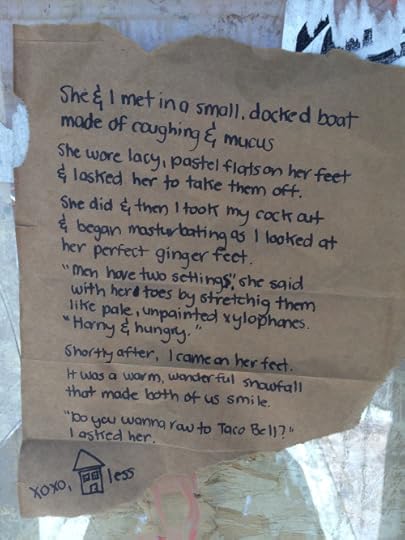 She & I met in a small, docked boat
made of coughing & mucus
She wore lacy, pastel flats on her feet
& I asked her to take them off.
She did & then I took my cock out
& began masturbating as I looked at
her perfect ginger feet.
"Men have two settings", she said
with her toes by stretchig them
like pale, unpainted xylophones.
"Horny & hungry."
Shortly after, I came on her feet.
It was a warm, wonderful snowfall
that made both of us smile.
"Do you wanna row to Taco Bell?"
I asked her.
xoxo, less